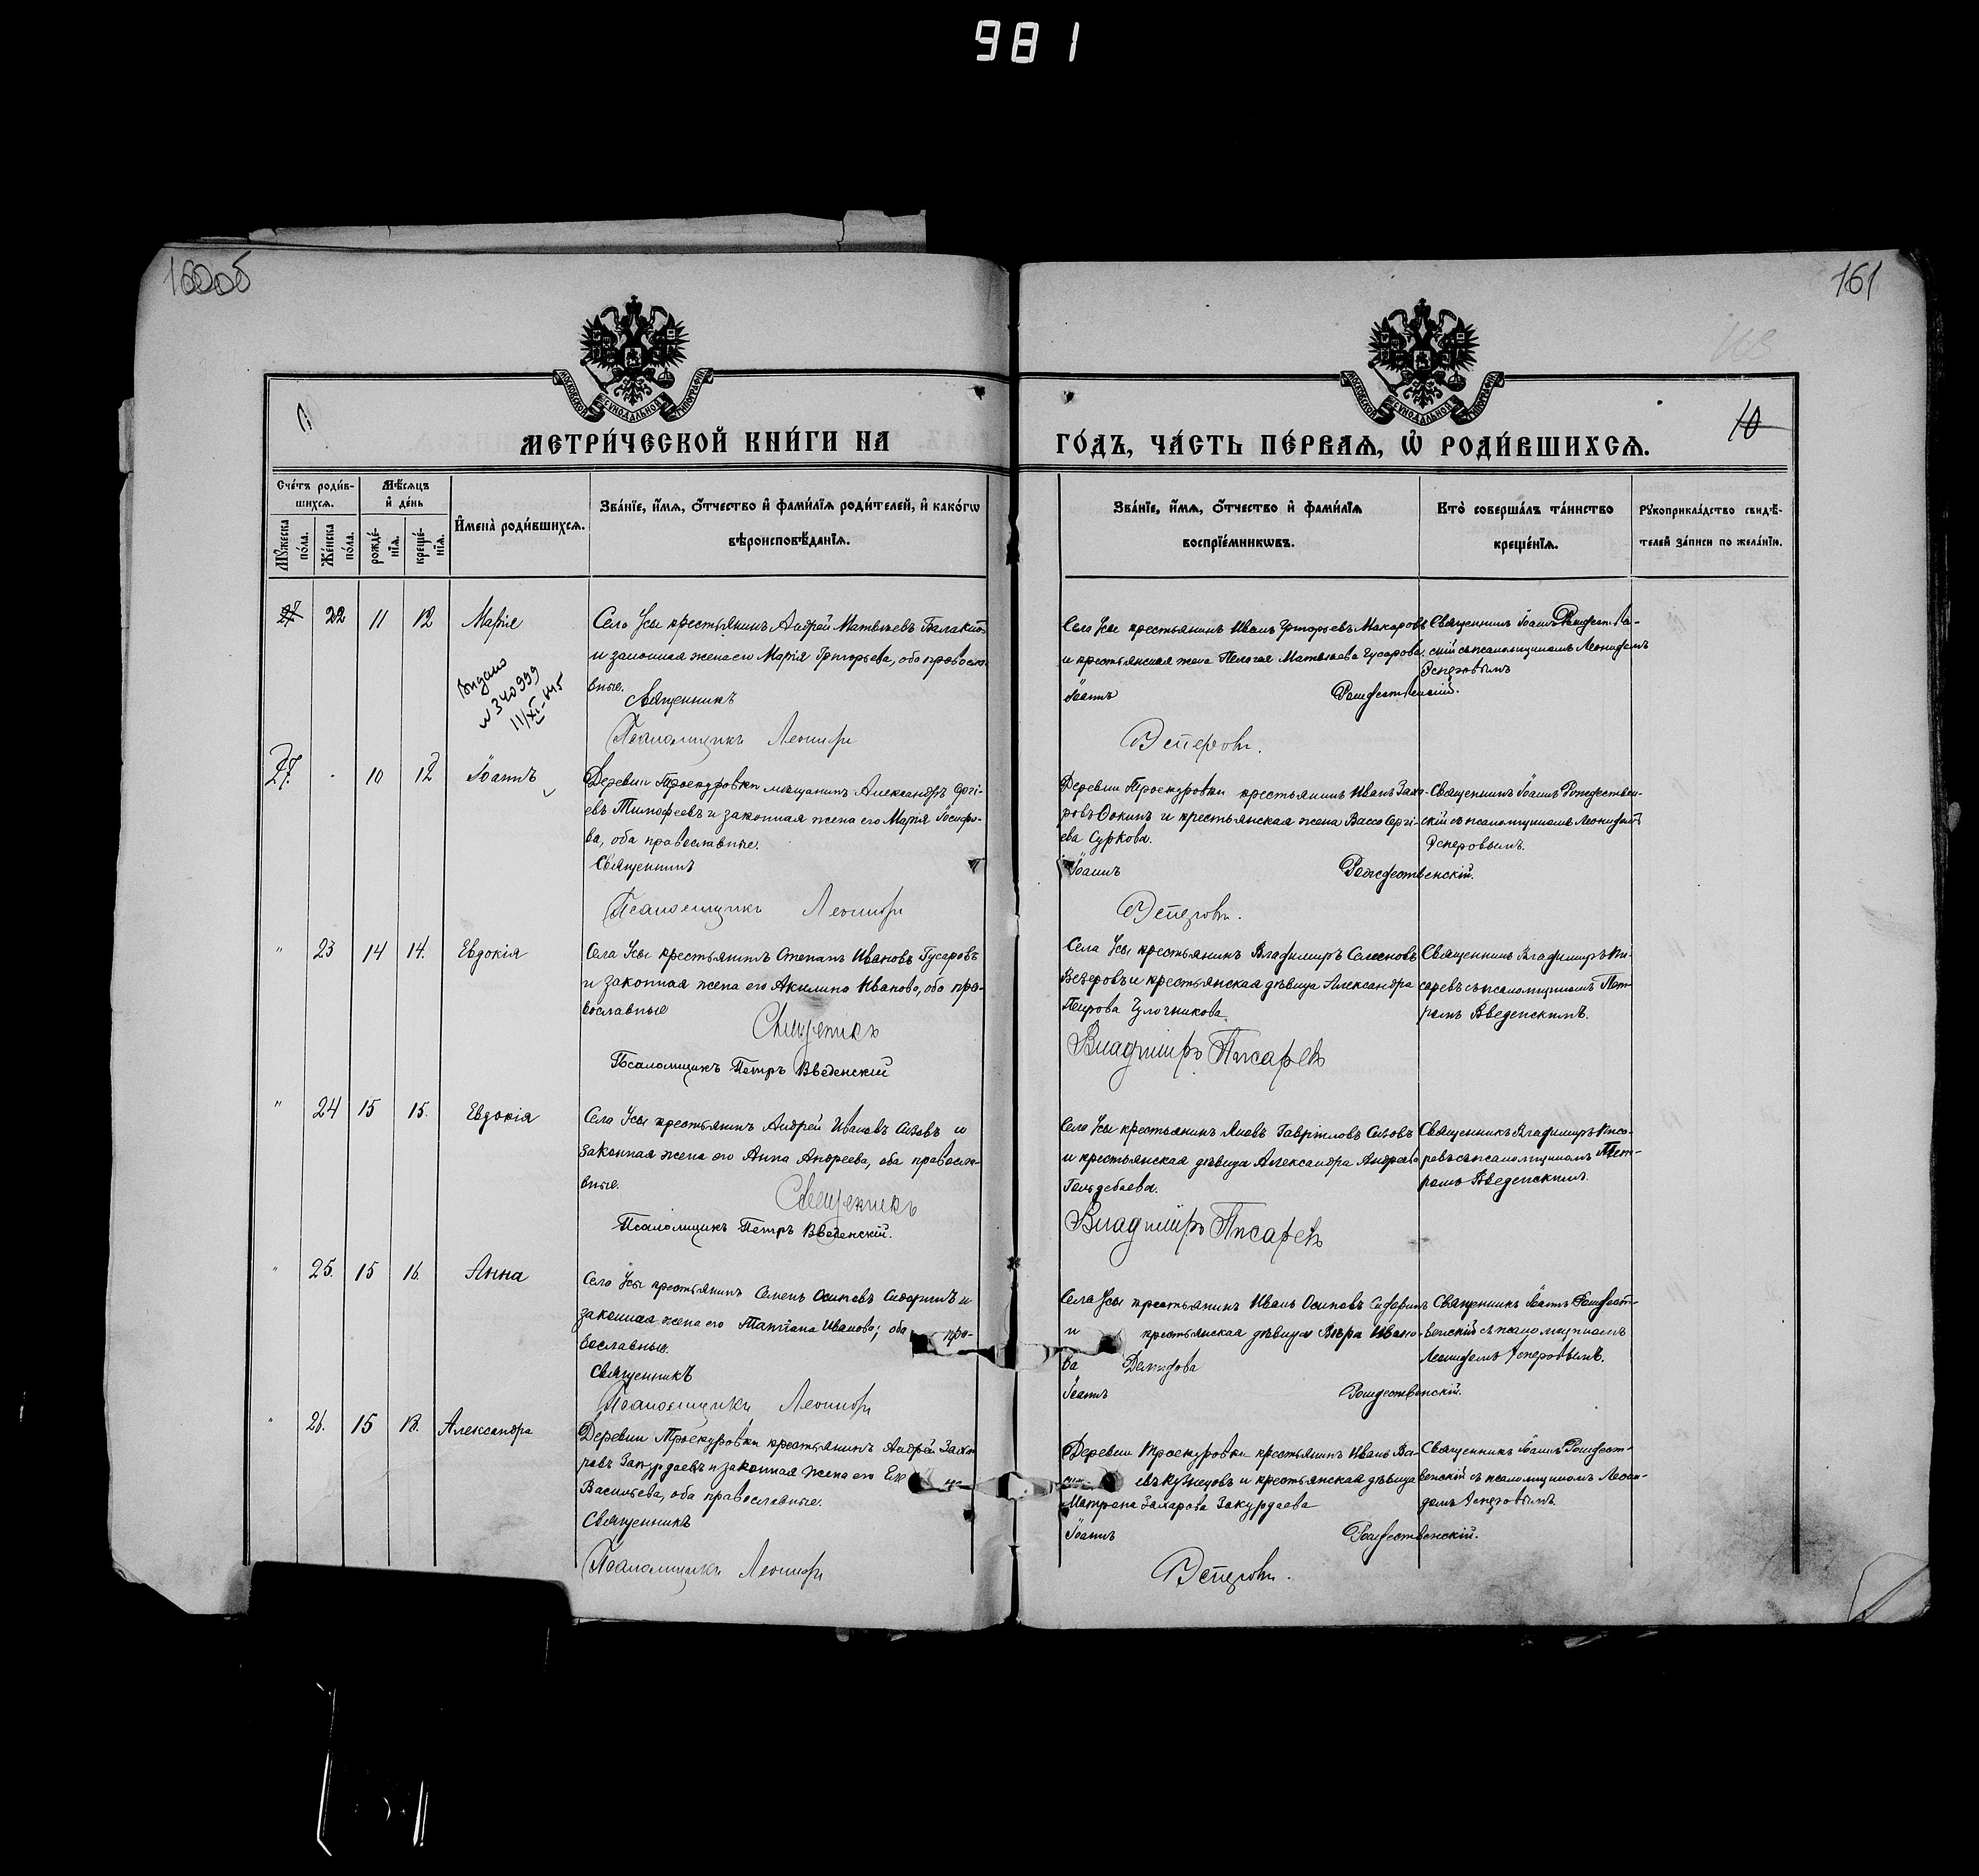 981
160об
161
163
10
МОСКОВСКОЙ СѴНОДАЛЬНОЙ ТИПОГРАФІИ
МОСКОВСКОЙ СѴНОДАЛЬНОЙ ТИПОГРАФІИ
МЕТРИ́ЧЕСКОЙ КНИ́ГИ НА
ГО́ДЪ, ЧА́СТЬ ПЕ́РВАѦ, Ѡ҆ РОДИ́ВШИХСѦ.
Сче́тъ роди́в-
шихсѧ.
Мѣ́сѧцъ
и҆ де́нь
Мꙋ́жеска по́ла.
Же́нска по́ла.
рожде́-
нїѧ.
креще́-
нїѧ.
И҆мена̀ роди́вшихсѧ.
Зва́нїе, и҆́мѧ, ѻ҆́тчество и҆ фами́лїѧ роди́телей, и҆ како́гѡ
вѣроисповѣ́данїѧ.
Зва́нїе, и҆́мѧ, ѻ҆́тчество и҆ фами́лїѧ
воспрїе́мникѡвъ.
Кто̀ соверша́лъ та́инство
креще́нїѧ.
Рꙋкоприкла́дство свидѣ́-
телей за́писи по жела́нїю.
22 11 12 Марія
Села Усы крестьянинъ Андрей Матвѣевъ Балакинъ
и законная жена его Марія Григорьева, оба правосла-
вные.
Священникъ
Псаломщикъ Леонидъ
Выдано
№ 340999
11/XI-45
Села Усы крестьянинъ Иванъ Григорьевъ Макаровъ
и крестьянская жена Пелагея Матвѣева Гусарова.
Іоаннъ Рождественскій.
Эсперовъ.
Священникъ Іоаннъ Рождествен-
скій съ псаломщикомъ Леонидомъ
Эсперовымъ
27. 10 12 Іоаннъ
Деревни Троекуровки мѣщанинъ Александръ Сергі-
евъ Тимофеевъ и законная жена его Марія Іосифо-
ва, оба православные.
Священникъ
Псаломщикъ Леонидъ
Деревни Троекуровки крестьянинъ Иванъ Заха-
ровъ Фокинъ и крестьянская жена Васса Сергі-
ева Суркова.
Іоаннъ Рождественскій.
Эсперовъ.
Священникъ Іоаннъ Рождествен-
скій съ псаломщикомъ Леонидомъ
Эсперовымъ.
" 23 14 14. Евдокія
Села Усы крестьянинъ Степанъ Ивановъ Гусаровъ
и законная жена его Акилина Иванова, оба пра-
вославные
Священникъ
Псаломщикъ Петръ Введенскій
Села Усы крестьянинъ Владимиръ Семеновъ
и крестьянская дѣвица Александра
Петрова Чулочникова.
Владиміръ Писаревъ
Священникъ Владимиръ Пи-
саревъ съ псаломщикомъ Пет-
ромъ Введенскимъ.
" 24 15 15. Евдокія
Села Усы крестьянинъ Андрей Ивановъ Сизовъ и
законная жена его Анна Андреева, оба правосла-
вные.
Священникъ
Псаломщикъ Петръ Введенскій.
Села Усы крестьянинъ Яковъ Гавріиловъ Сизовъ
и крестьянская дѣвица Александра Андреева
Владиміръ Писаревъ
Священникъ Владимиръ Писа-
ревъ съ псаломщикомъ Пет-
ромъ Введенскимъ.
" 25. 15 16. Анна
Села Усы крестьянинъ Семенъ Осиповъ Сидоринъ и
законная жена его Татіана Иванова; оба пра-
вославные.
Священникъ
Псаломщикъ Леонидъ
Села Усы крестьянинъ Иванъ Осиповъ Сидоринъ
и крестьянская дѣвица Вѣра Ивано-
ва Демидова
Іоаннъ Рождественскій.
Священникъ Іоаннъ Рождест-
венскій съ псаломщикомъ
Леонидомъ Эсперовымъ.
26. 15 18. Александра
Деревни Троекуровки крестьянинъ Андрей Заха-
ровъ Закурдаевъ и законная жена его
Васильева, оба православные.
Священникъ
Псаломщикъ Леонидъ
Деревни Троекуровки крестьянинъ Иванъ Ва-
евъ Кузнецовъ и крестьянская дѣвица
Матрона Захарова Закурдаева
Іоаннъ Рождественскій.
Эсперовъ.
Священникъ Іоаннъ Рождест-
венскій съ псаломщикомъ Леони-
домъ Эсперовымъ